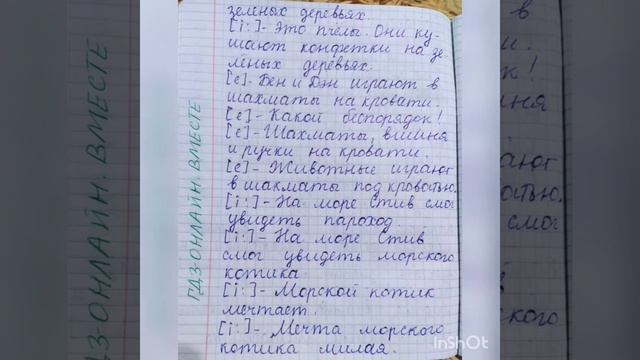 зелёных деревьях.
[i:]- Это пчёлы. Они ку-
шают конфетки на зе-
лёных деревьях.
[e]- Бен и Дэн играют в
шахматы на кровати.
[e]- Какой беспорядок!
[e]- Шахматы, вишня
и ручки на кровати.
[e]- Животные играют
в шахматы под кроватью.
[i:]- На море Стив смог
увидеть пароход
[i:]- На море Стив
смог увидеть морского
котика
[i:]- Морской котик
мечтает.
[i:]- Мечта морского
котика милая.
ГДЗ ОНЛАЙН. ВМЕСТЕ
InShOt